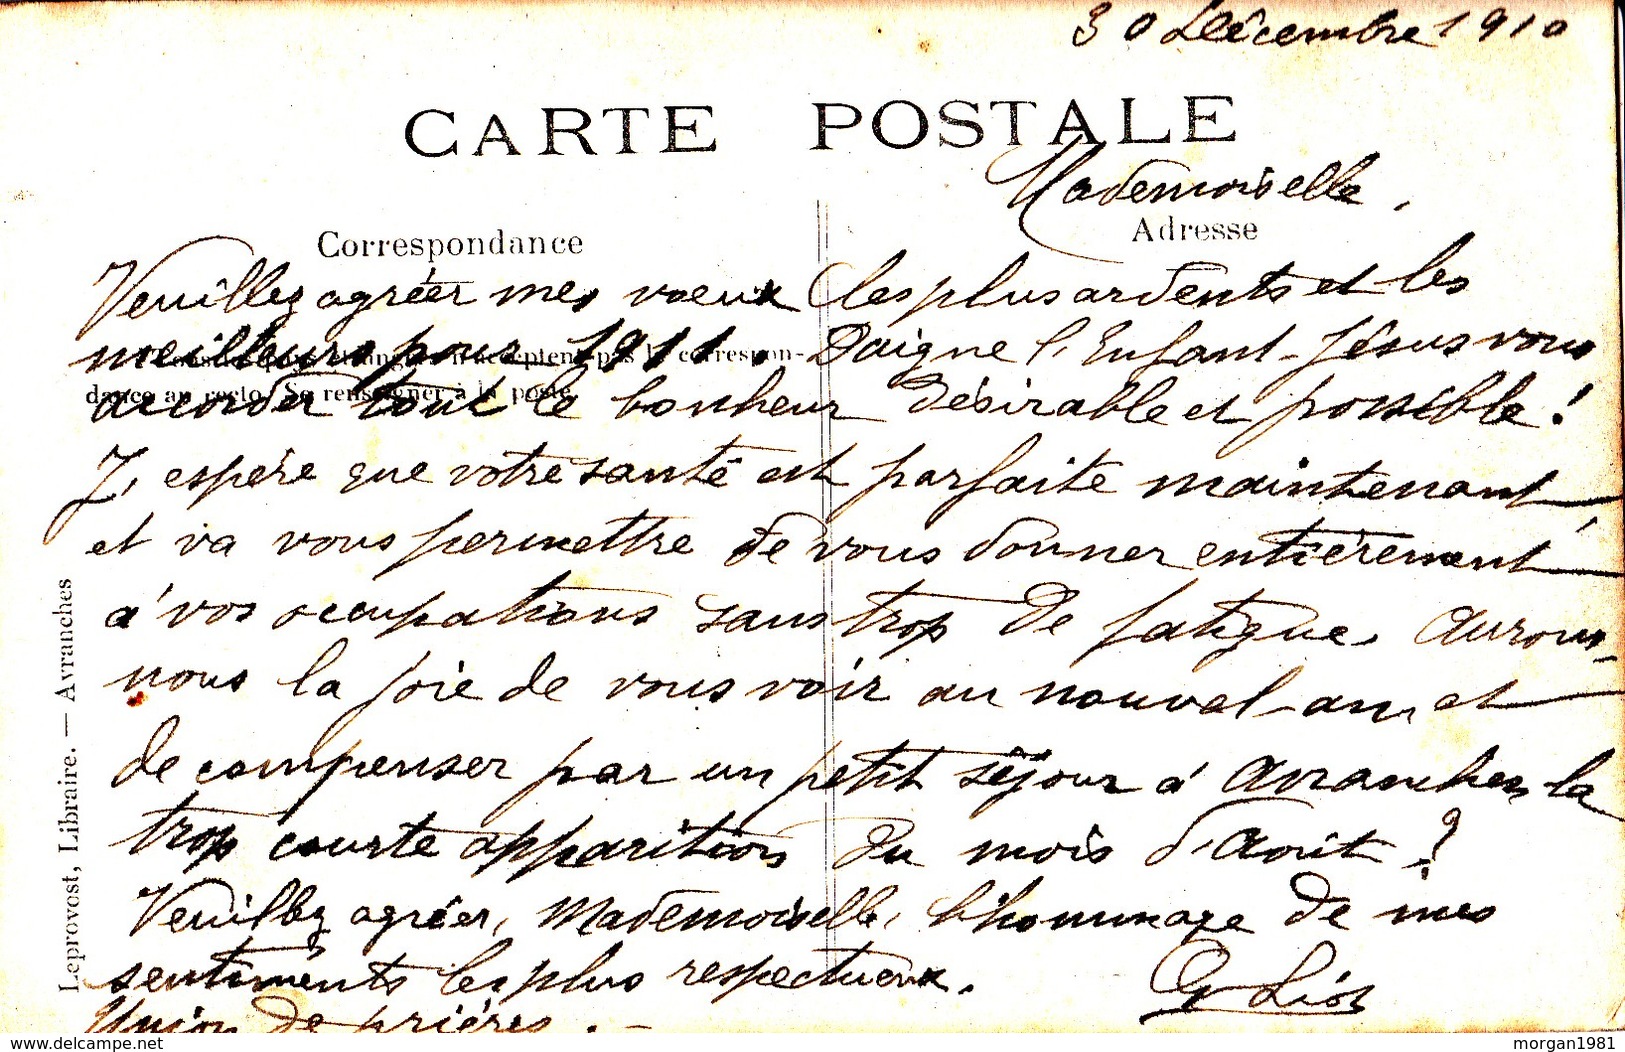 30 Décembre 1910
CARTE POSTALE
Mademoiselle,
Correspondance
Adresse
Veuillez agréer mes voeux les plus ardents et les
meilleurs pour 1911. Daigne l'Enfant-Jésus vous
Tous les pays étrangers n'acceptent pas la correspon-
dance au recto. Se renseigner à la poste.
accorder tout le bonheur désirable et possible !
J'espère que votre santé est parfaite maintenant,
et va vous permettre de vous donner entièrement
à vos occupations sans trop de fatigue. Aurons-
nous la joie de vous voir au nouvel-an, et
de compenser par un petit séjour à Avranches, la
trop courte apparition du mois d'Août ?
Veuillez agréer, Mademoiselle, l'hommage de mes
sentiments les plus respectueux.
Union de prières. -
Leprovost, Libraire. — Avranches
delcampe.net
morgan1981